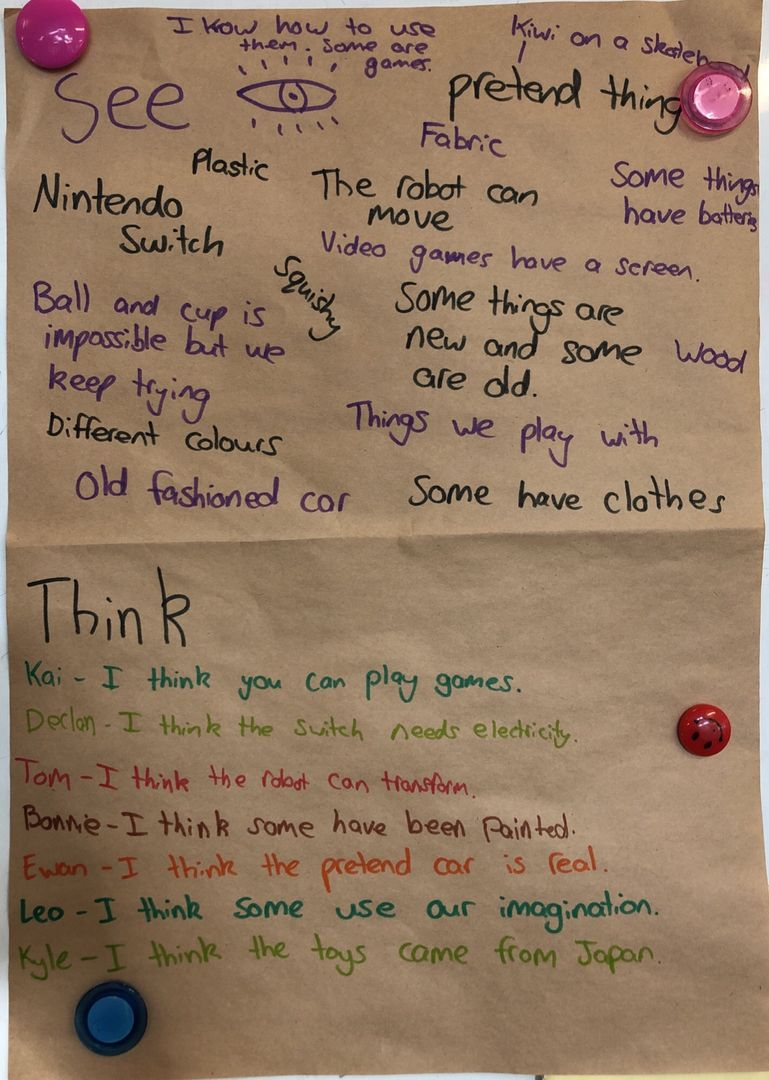 I kow how to use
them. Some are
games.
Kiwi on a
See
pretend thing
Fabric
Plastic
Nintendo
Switch
The robot can
move
Some things
have batteries
Video games have a screen.
Squishy
Ball and cup is
impossible but we
keep trying
Some things are
new and some
are old.
Wood
Different colours
Things we play with
Old fashioned car
Some have clothes
Think
Kai - I think you can play games.
Declan - I think the switch needs electricity.
Tom - I think the robot can transform.
Bonnie - I think some have been painted.
Ewan - I think the pretend car is real.
Leo - I think some use our imagination.
Kyle - I think the toys came from Japan.